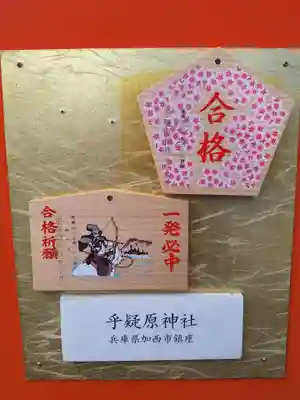 合格
一発必中
合格祈願
乎疑原神社
兵庫県加西市鎮座